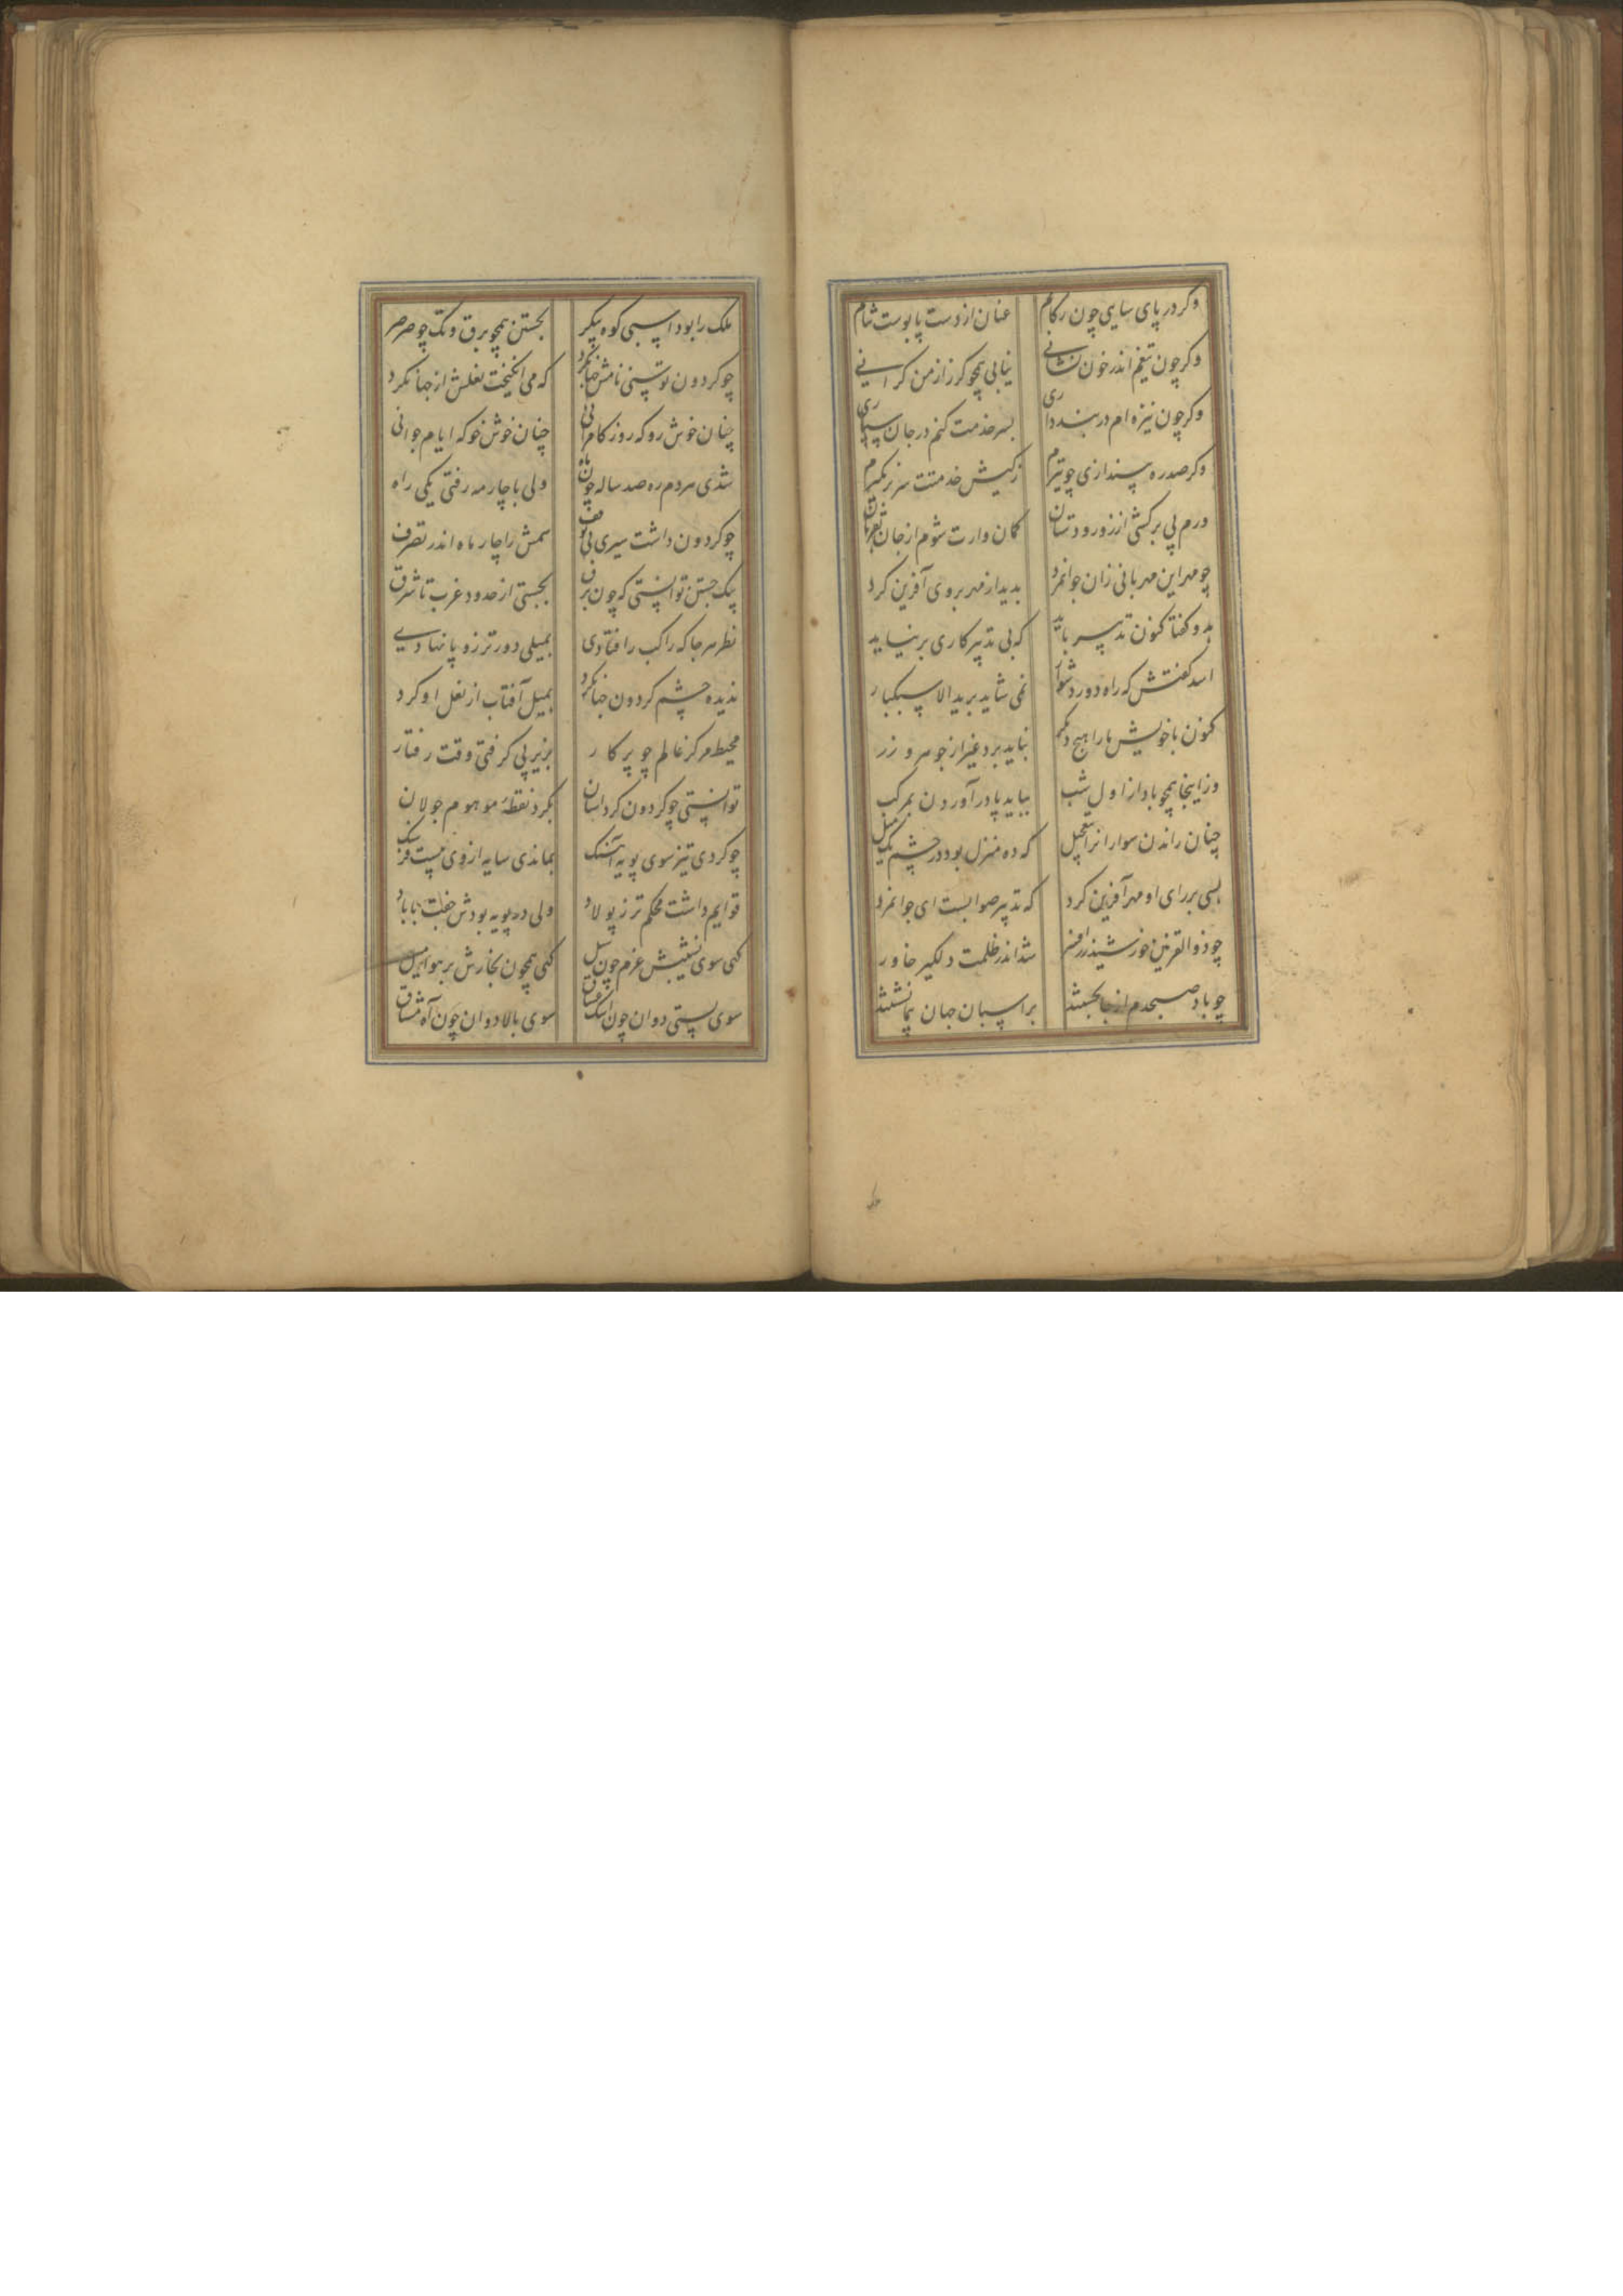 وکر در پای سایی چون رکابم عنان از دست پابوست نتابم
وکر چون تیغم اندر خون نشانی نیابی همچو کرز از من کرانی
وکر چون نیزه ام در بند داری بسر خدمت کنم در جان سپاری
وکر صد ره بیندازی چو تیرم ز کیش خدمتت سر بر نکیرم
ورم پی برکشی از زور دستان کمان وارت شوم از جان بفرمان
چو مهر این مهربانی زان جوانمرد بدید از مهر بر وی آفرین کرد
بدو کفتا کنون تدبیر باید که بی تدبیر کاری بر نیاید
اسد کفتش که راه دور دشوار نمی شاید برید الا سبکبار
کنون با خویش ما را هیچ دیکر نباید برد غیر از جوهر و زر
وز اینجا همچو باد از اول شب بباید پا در آوردن بمرکب
چنان راندن سواران را بتعجیل که ده منزل بود در چشم یک میل
بسی بر رای او مهر آفرین کرد که تدبیر صوابست ای جوانمرد
چو ذو القرنین خورشید شد اندر ظلمت دلکیر خاور
چو باد صبحدم از جا بجستند بر اسبان جهان پیما نشستند
ملک را بود اسبی کوه پیکر بجستن همچو برق و تک چو صرصر
چو کردون توسنی نامش جهانکرد که می انکیخت نعلش از جهان کرد
چنان خوش رو که روز کامرانی چنان خوش خو که ایام جوانی
شدی هر دم ره صد ساله چون ماه ولی با چار مه رفتی یکی راه
چو کردون داشت سیری بی توقف سمش را چار ماه اندر تصرف
بیک جستن توانستی که چون برق بجستی از حدود غرب تا شرق
نظر هر جا که راکب را فتادی بمیلی دورتر زو پا نهادی
ندیده چشم کردون جهانکرد بمیل آفتاب از نعل او کرد
محیط مرکز عالم چو پرکار بزیر پی کرفتی وقت رفتار
توانستی چو کردون کرد آسان بکرد نقطهٔ موهوم جولان
چو کردی تیز سوی پویه آهنک بماندی سایه از وی بیست فرسنک
قوایم داشت محکم تر ز پولاد ولی در پویه بودش جفت با باد
کهی سوی نشیبش عزم چون سیل کهی همچون بخارش بر هوا میل
سوی پستی دوان چون اشک عشاق سوی بالا دوان چون آه مشتاق